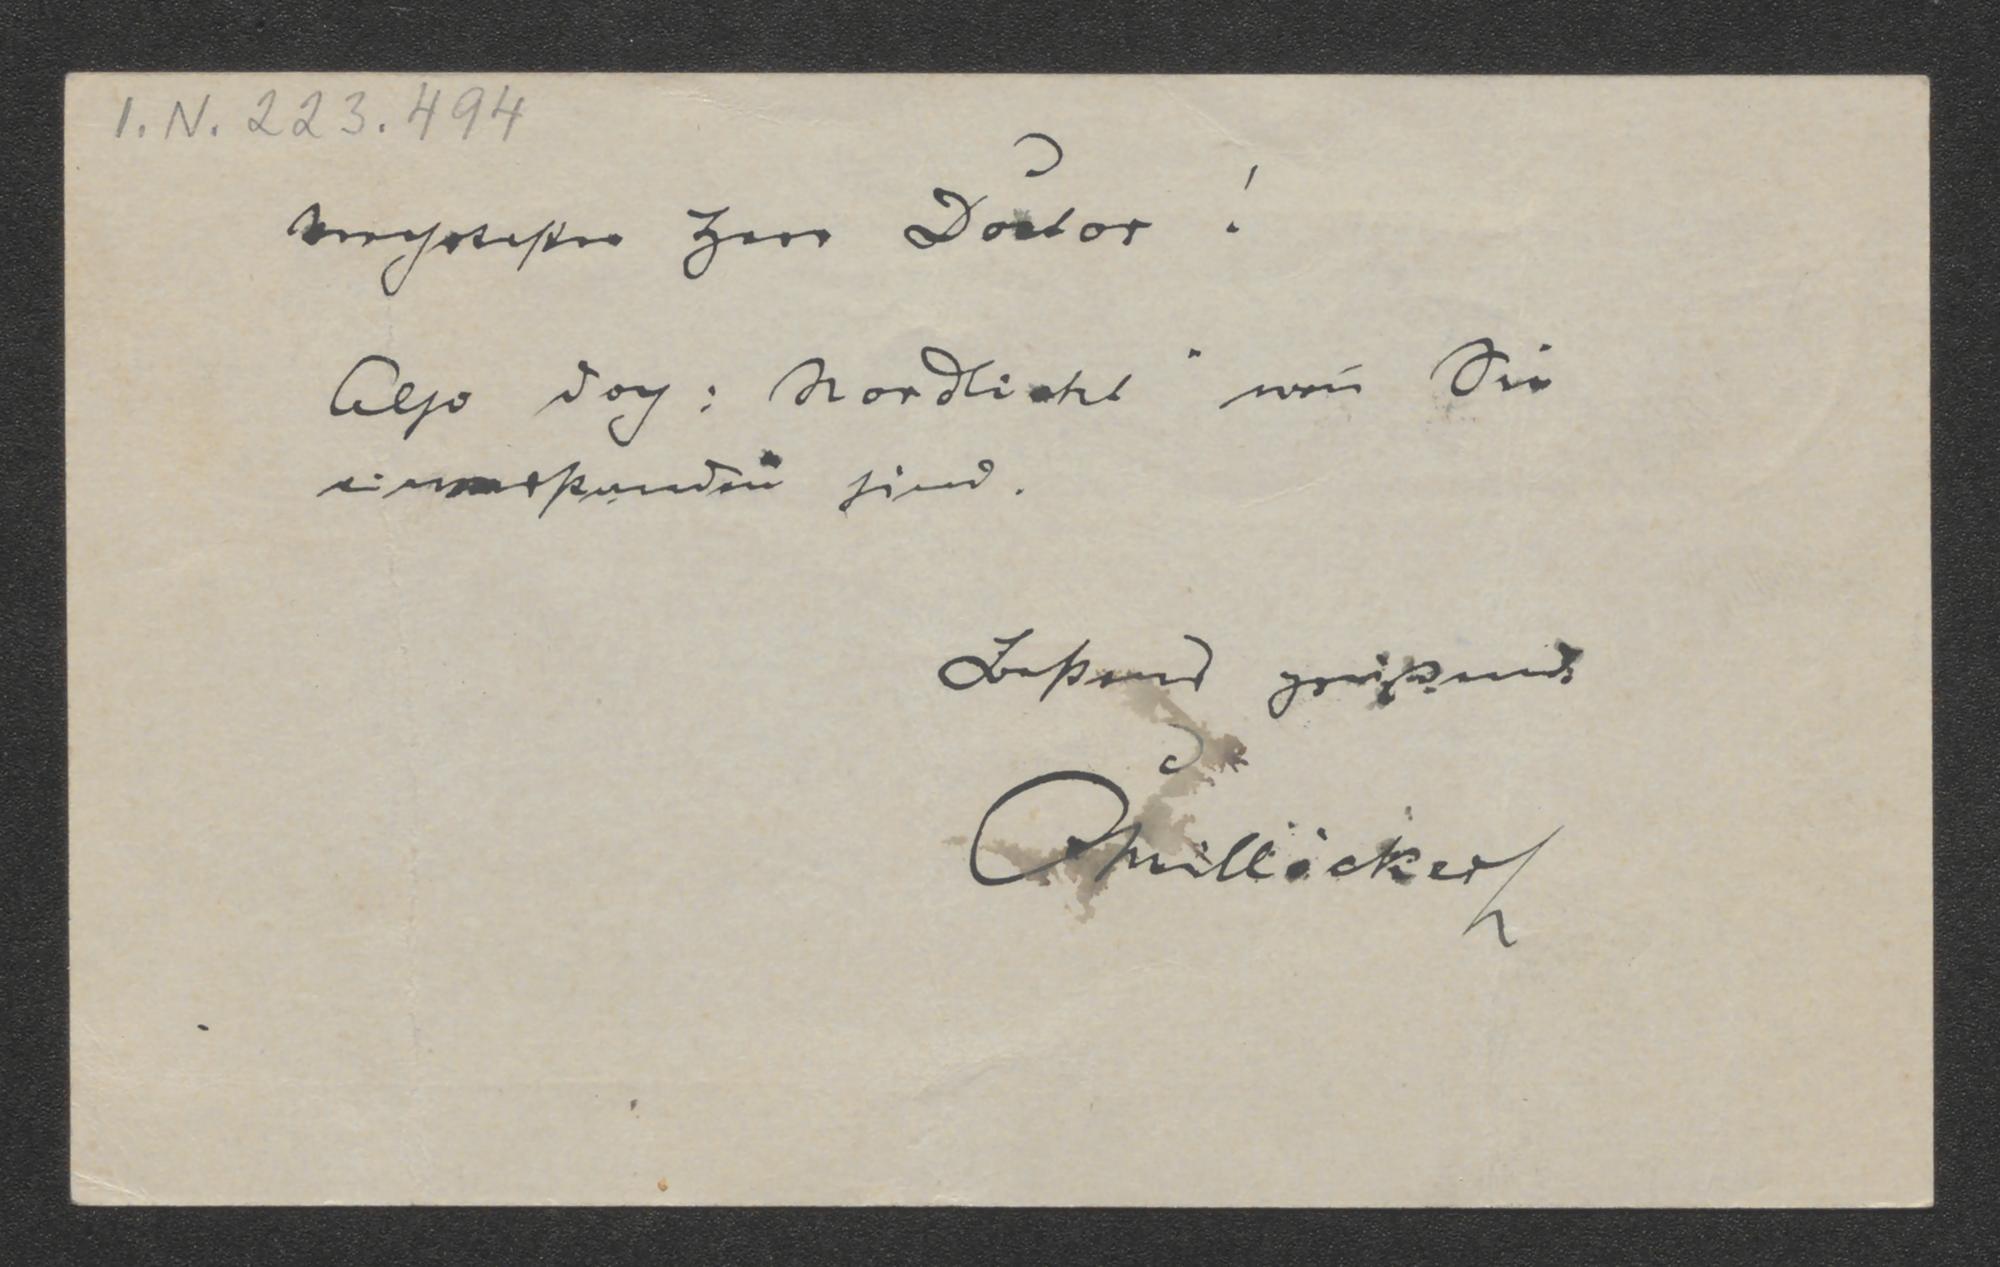 I.N. 223.494
Verehrtester Herr Doctor!
Also doch: Nordlicht" wen̄ Sie
einverstanden sind.
Bestens grüßend
CMillöcker